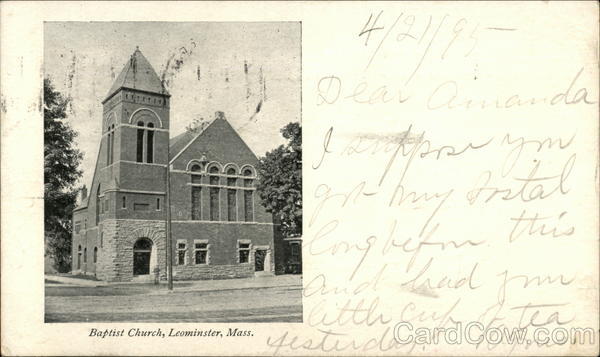 4/21/95
Dear Amanda
I suppose you
got my postal
long before this
and had your
little cup of tea
yesterday.
Baptist Church, Leominster, Mass.
CardCow.com